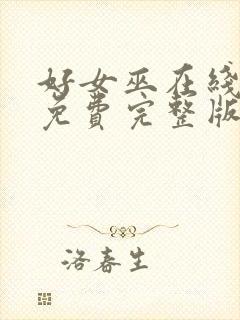 好女巫在线
免费完整版
洛春生